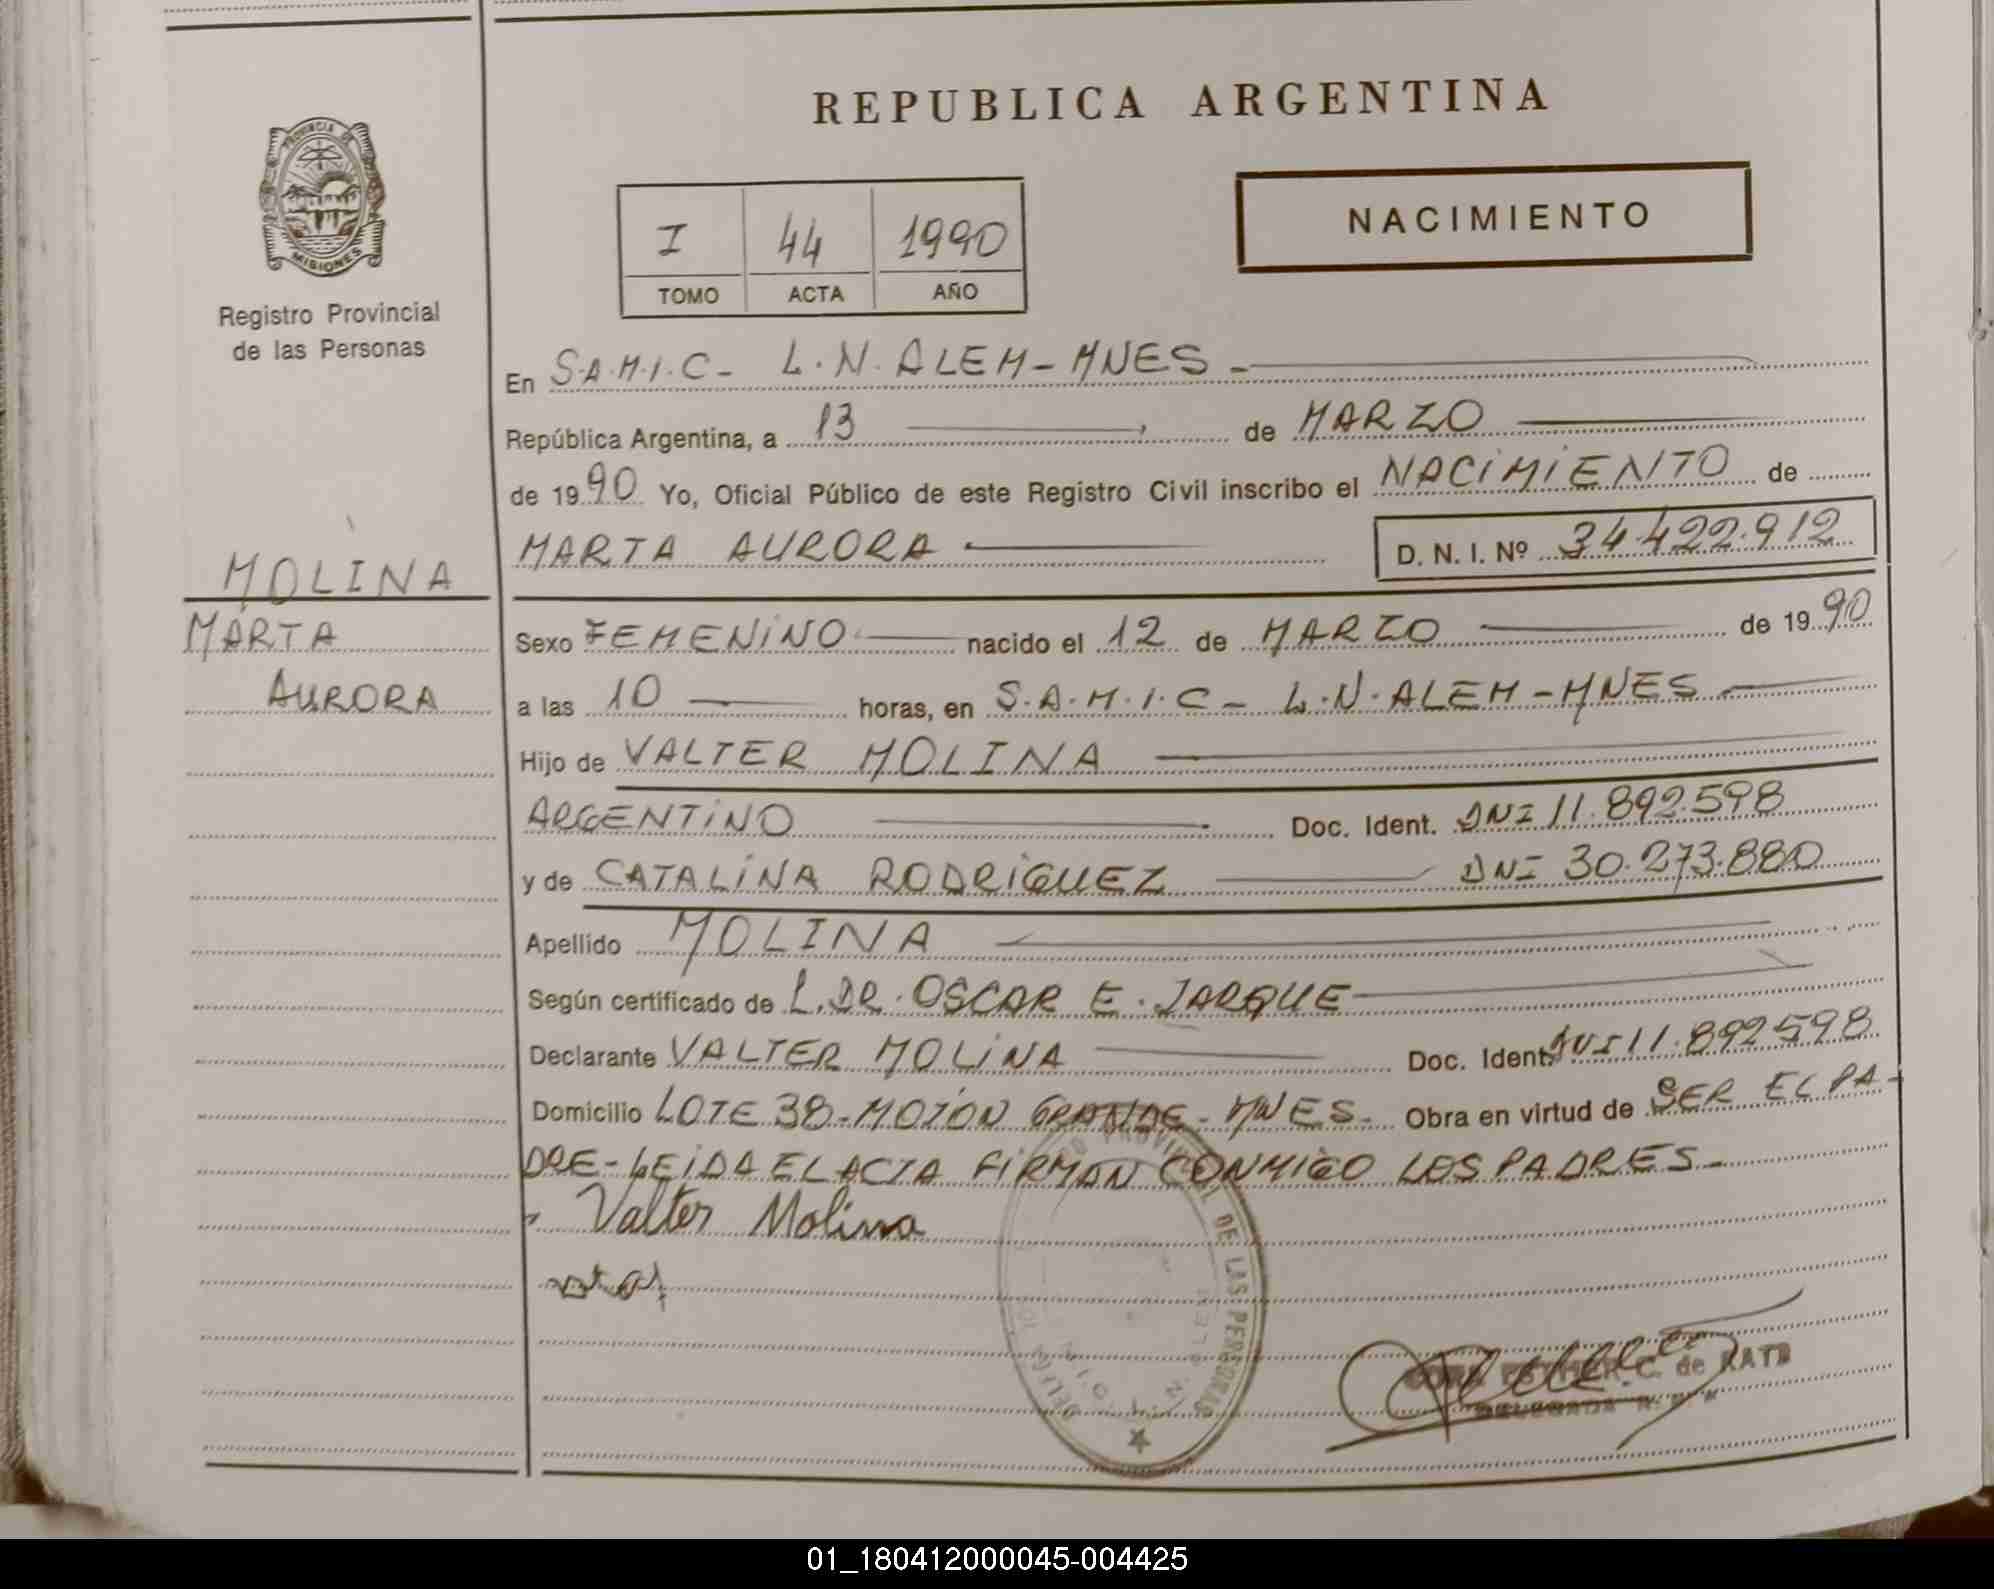 REPUBLICA ARGENTINA
PROVINCIA DE
MISIONES
Registro Provincial
de las Personas
NACIMIENTO
I 44 1990
TOMO ACTA AÑO
En S.A.M.I.C- L.N.ALEM-MNES-
República Argentina, a 13 de MARZO
de 1990 Yo, Oficial Público de este Registro Civil inscribo el NACIMIENTO de
MARTA AURORA D. N. I. Nº 34.422.912
MOLINA
MARTA
AURORA
Sexo FEMENINO nacido el 12 de MARZO de 1990
a las 10 horas, en S.A.M.I.C- L.N.ALEM-MNES
Hijo de VALTER MOLINA
ARGENTINO Doc. Ident. DNI 11.892.598
y de CATALINA RODRIGUEZ DNI 30.273.880
Apellido MOLINA
Según certificado de L.DR.OSCAR E.JARQUE
Declarante VALTER MOLINA Doc. Ident. DNI 11.892598
Domicilio LOTE 38-MOJON GRANDE-MNES- Obra en virtud de SER EL PA-
DRE-LEIDA EL ACTA FIRMAN CONMIGO LOS PADRES-
Valter Molina
PROVINCIAL DE LAS PERSONAS
C. de RATE
DELEGADA
01_180412000045-004425